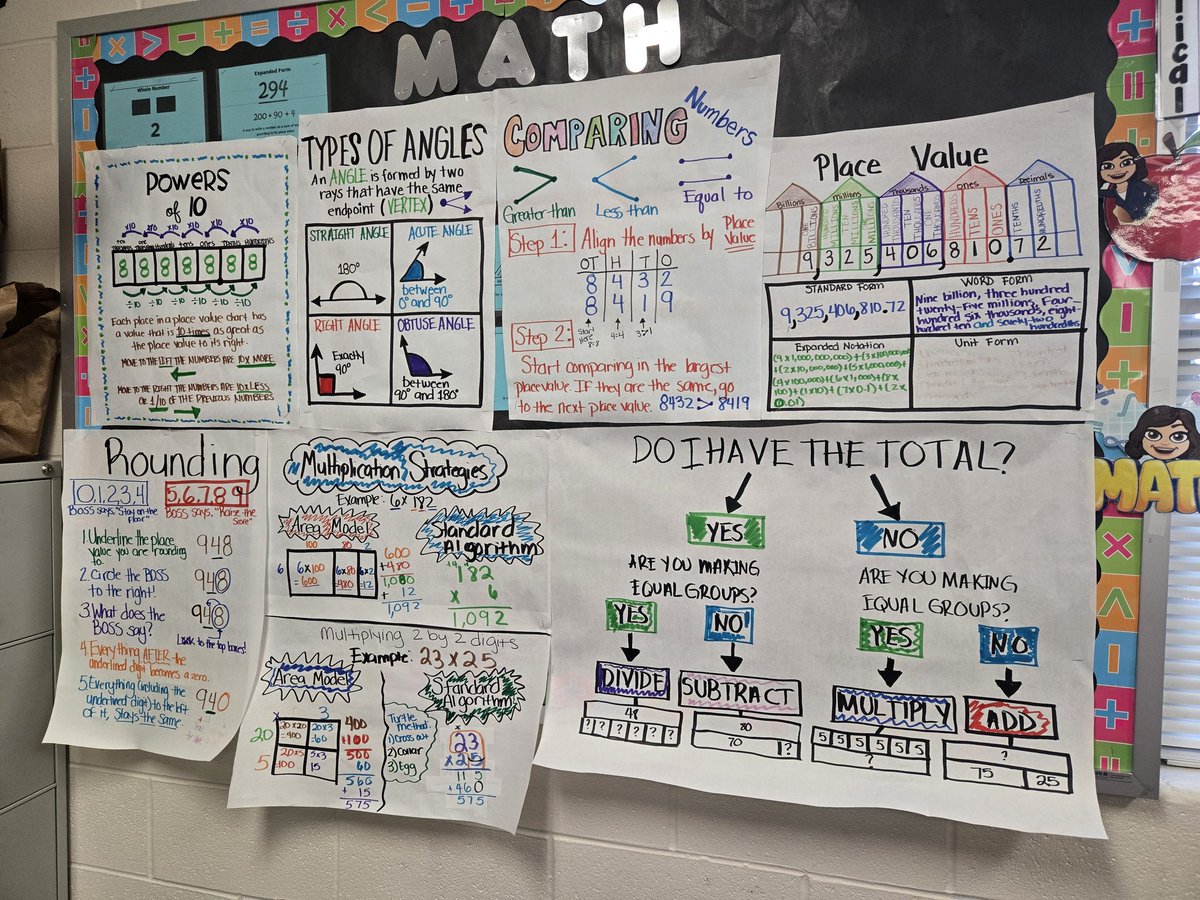 MATH
Whole Number
2
Expanded Form
294
200 + 90 + 4
POWERS
of 10
x10 x10 x10 x10 x10 x10
8 8 8 8 8 8 8
÷10 ÷10 ÷10 ÷10 ÷10
Each place in a place value chart has
a value that is 10 times as great as
the place value to its right.
MOVE TO THE LEFT THE NUMBERS ARE 10X MORE
MOVE TO THE RIGHT THE NUMBERS ARE 10X LESS
OR 1/10 OF THE PREVIOUS NUMBERS
TYPES OF ANGLES
An ANGLE is formed by two
rays that have the same
endpoint (VERTEX)
STRAIGHT ANGLE
180°
ACUTE ANGLE
between
0° and 90°
RIGHT ANGLE
Exactly
90°
OBTUSE ANGLE
between
90° and 180°
COMPARING Numbers
Greater than
Less than
Equal to
Step 1: Align the numbers by Place
Value
OT H T O
8 4 3 2
8 4 1 9
Start
Here
8=8
4=4
3>1
Step 2:
Start comparing in the largest
place value. IF they are the same, go
to the next place value. 8432 > 8419
Place Value
Billions
Millions
Thousands
Ones
Decimals
BILLIONS
MILLIONS
HUNDREDS
TENS
ONES
TENTHS
HUNDREDTHS
9,325,406,810.72
STANDARD FORM
9,325,406,810.72
WORD FORM
Nine billion, three hundred
twenty-five millions, Four-
hundred six thousands, eight-
hundred ten and seventy two
hundredths
Expanded Notation
(9x1,000,000,000)+(3x100,000,000)
+(2x10,000,000)+(5x1,000,000)+
(4x100,000)+(6x1,000)+(8x
100)+(1x10)+(7x0.1)+(2x
0.01)
Unit Form
Rounding
0,1,2,3,4
5,6,7,8,9
Boss says "Stay on the
Floor"
Boss says, "Raise the
Score"
1. Underline the place
value you are rounding
to.
948
2. Circle the BOSS
to the right!
948
3. What does the
BOSS say?
948
Look to the top boxes!
4. Everything AFTER the
underlined digit becomes a zero.
5. Everything (including the
underlined digit) to the left
OF it, Stays the Same
940
Multiplication Strategies
Example: 6 x 182
Area Model
100 80 2
6
6x100
=600
6x80
=480
6x2
=12
600
+480
1,080
+ 12
1,092
Standard
Algorithm
182
x 6
1,092
Multiplying 2 by 2 digits
Example: 23 x 25
Area Model
20 3
20
5
20 x 20
=400
20x3
=60
20x5
=100
5x3
15
400
+100
500
60
560
+ 15
575
Turtle
method:
1) Cross out
2) Collar
3) Egg
Standard
Algorithm
23
x25
115
+460
575
DO I HAVE THE TOTAL?
YES
NO
ARE YOU MAKING
EQUAL GROUPS?
ARE YOU MAKING
EQUAL GROUPS?
YES
NO
YES
NO
DIVIDE
SUBTRACT
MULTIPLY
ADD
48
? ? ? ? ? ?
80
70 ?
5 5 5 5 5 5
?
?
75 25
MATH